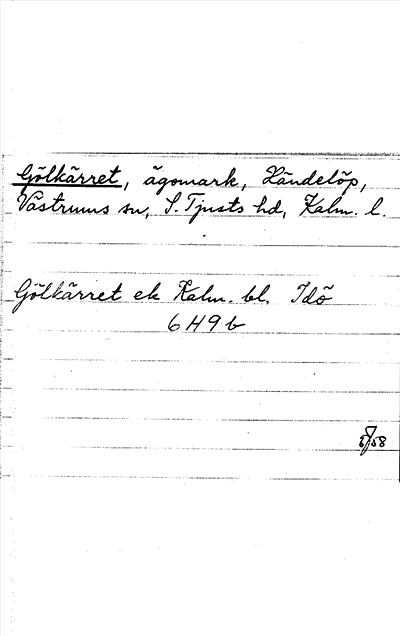 Gölkärret, ägomark, Händelöp,
Västrums sn, S. Tjusts hd, Kalm. l.
Gölkärret ek Kalm. bl. Idö
6H9b